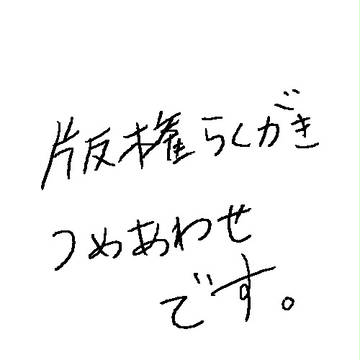 版権らくがき
つめあわせ
です。